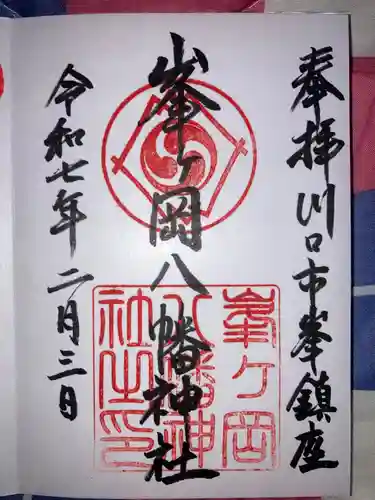 奉拝 川口市峯鎮座
峯ヶ岡八幡神社
令和七年二月三日
峯ヶ岡
八幡神
社之印